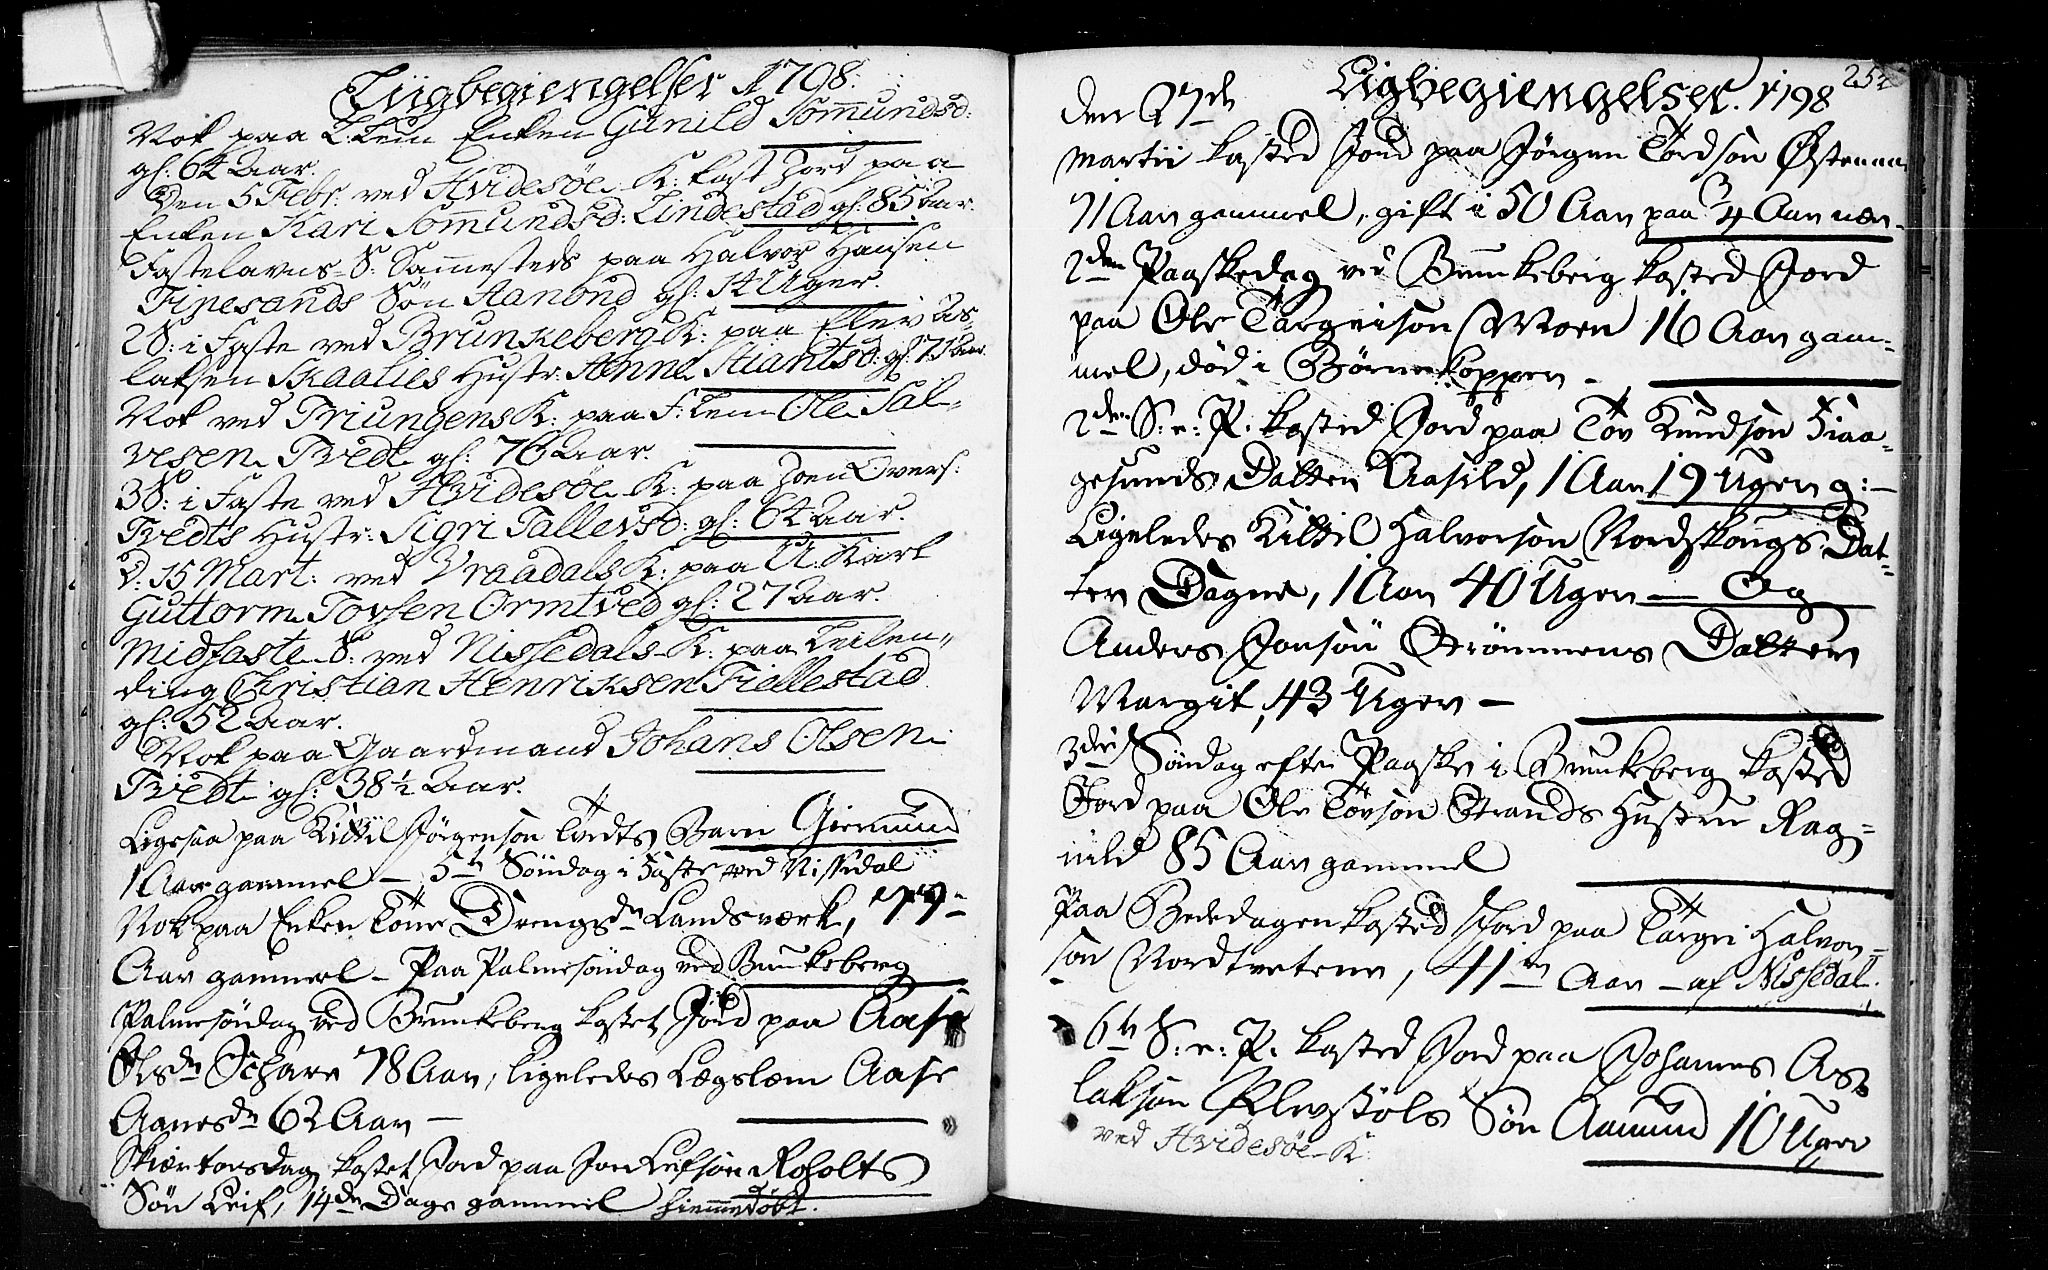 Liigbegiengelser 1798.
Nok paa L: Lem Enken Gunild Tommundsd:
gl: 64 Aar.
Den 5 Febr: ved Hvidesøe K: kast Jord paa
Enken Kari Tommundsd: Lindestad gl: 85 Aar.
Fastelavns S: Sammesteds paa Halvor Hansen
Fipesands Søn Aanond gl: 14 Uger.
2 S: i Faste ved Brunkeberg K: paa Elev As-
laksen Skaalies Hustr: Anne gl: 71 Aar
Nok ved Triungens K: paa F: Lem Ole Sal-
vesen Tvedt gl: 76 Aar.
3 S: i Faste ved Hvidesøe K: paa Joen Overs:
Tvedts Hustr: Sigri Tallevsd: gl: 64 Aar.
D. 15 Mart: ved Vraadals K: paa U. Karl
Guttorm Tovsen Ormtved gl: 27 Aar.
Midfaste S: ved Nissedals K: paa Leilen-
ding Christian Henriksen Fiellestad
gl: 52 Aar.
Nok paa Gaardmand Johans Olsen
Tvedt gl: 38 1/2 Aar.
Ligesaa paa Kittil Jørgenson Tvedts Barn Giermund
1 Aar gammel – 5te Søndag i Faste ved Nissedal
Nok paa Enken Tone Drengsdr Landsværk, 79-
Aar gammel – Paa Palmesøndag ved Brunkeberg
Palmesøndag ved Brunkeberg kastet Jord paa Aase
Olsdr Schare 78 Aar, ligeledes Lægslem Aase
Aanesdr 62 Aar –
Skiærtorsdag kastet Jord paa Jon Leifson Roholts
Søn Leif, 14 Dage gammel hiemmedøbt.
Ligbegiengelser. 1798
252
den 27de
Martii kasted Jord paa Jørgen Tordson Østenaa
71 Aar gammel, gift i 50 Aar paa 3/4 Aar nær.
2den Paaskedag ved Brunkeberg kasted Jord
paa Ole Targeison Moen 16 Aar gam-
mel, død i Børnekopper –
2den S: e: P. kasted Jord paa Tov Knudson Fiaa-
gesunds Datter Aasild, 1 Aar 19 Uger g: –
Ligeledes Kittil Halvorson Nordskougs Dat-
ter Dagne, 1 Aar 40 Uger – Og
Anders Jonson Strømmens Datter
Margit, 43 Uger –
3die Søndag efter Paaske i Brunkeberg kasted
Jord paa Ole Tovson Strands Hustrue Rag-
nild 85 Aar gammel
Paa Bededagen kasted Jord paa Targei Halvor-
son Nordtvetene, 41 Aar – af Nissedal.
6te S: e: P. kasted Jord paa Johannes As-
lakson Søn Aamund 10 Uger
ved Hvidesøe K: